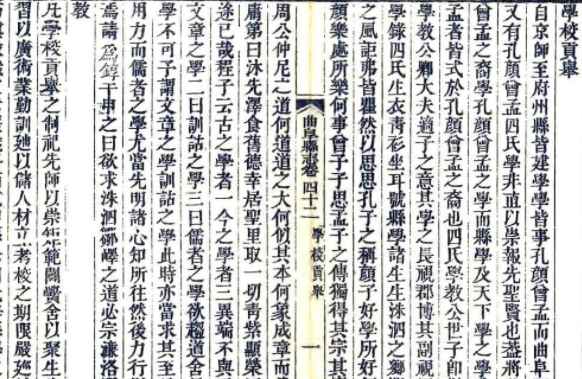 學校貢舉
自京師至府州縣皆建學學皆事孔顏曾孟而曲阜
又有孔顏曾孟四氏學非直以崇報先聖賢也茲將
曾孟之裔學孔顏曾孟之學而縣學及天下之學之
孟者皆式於孔顏曾孟之裔也四氏學教公世子卽
學教公卿大夫適子之意其學之長視郡博其副視
學錄四氏生衣靑衫坐耳號縣學諸生生洙泗之鄉
之風詎弗皆瞿然以思思孔子之稱顏子好學所好
顏樂處所樂何事曾子子思孟子之傳獨得其宗其
曲阜縣志卷四十二 學校貢舉 一
周公仲尼之道何道道之大何似其本何象成章而
庸第曰沐先澤食舊德幸居聖里取一切靑紫顯榮
途已哉程子云古之學者一今之學者三異端不與
文章之學二曰訓詁之學三曰儒者之學欲趨道舍
學不可予謂文章之學訓詁之學此時亦當求其至
用力而儒者之學尤當先明諸心知所往然後力行
焉請爲錞于申之曰欲求洙泗鄒嶧之道必宗濂洛
教
凡學校貢舉之制祀先師以崇範闢黌舍以聚生
習以廣術業勤訓廸以儲人材立考校之期限嚴